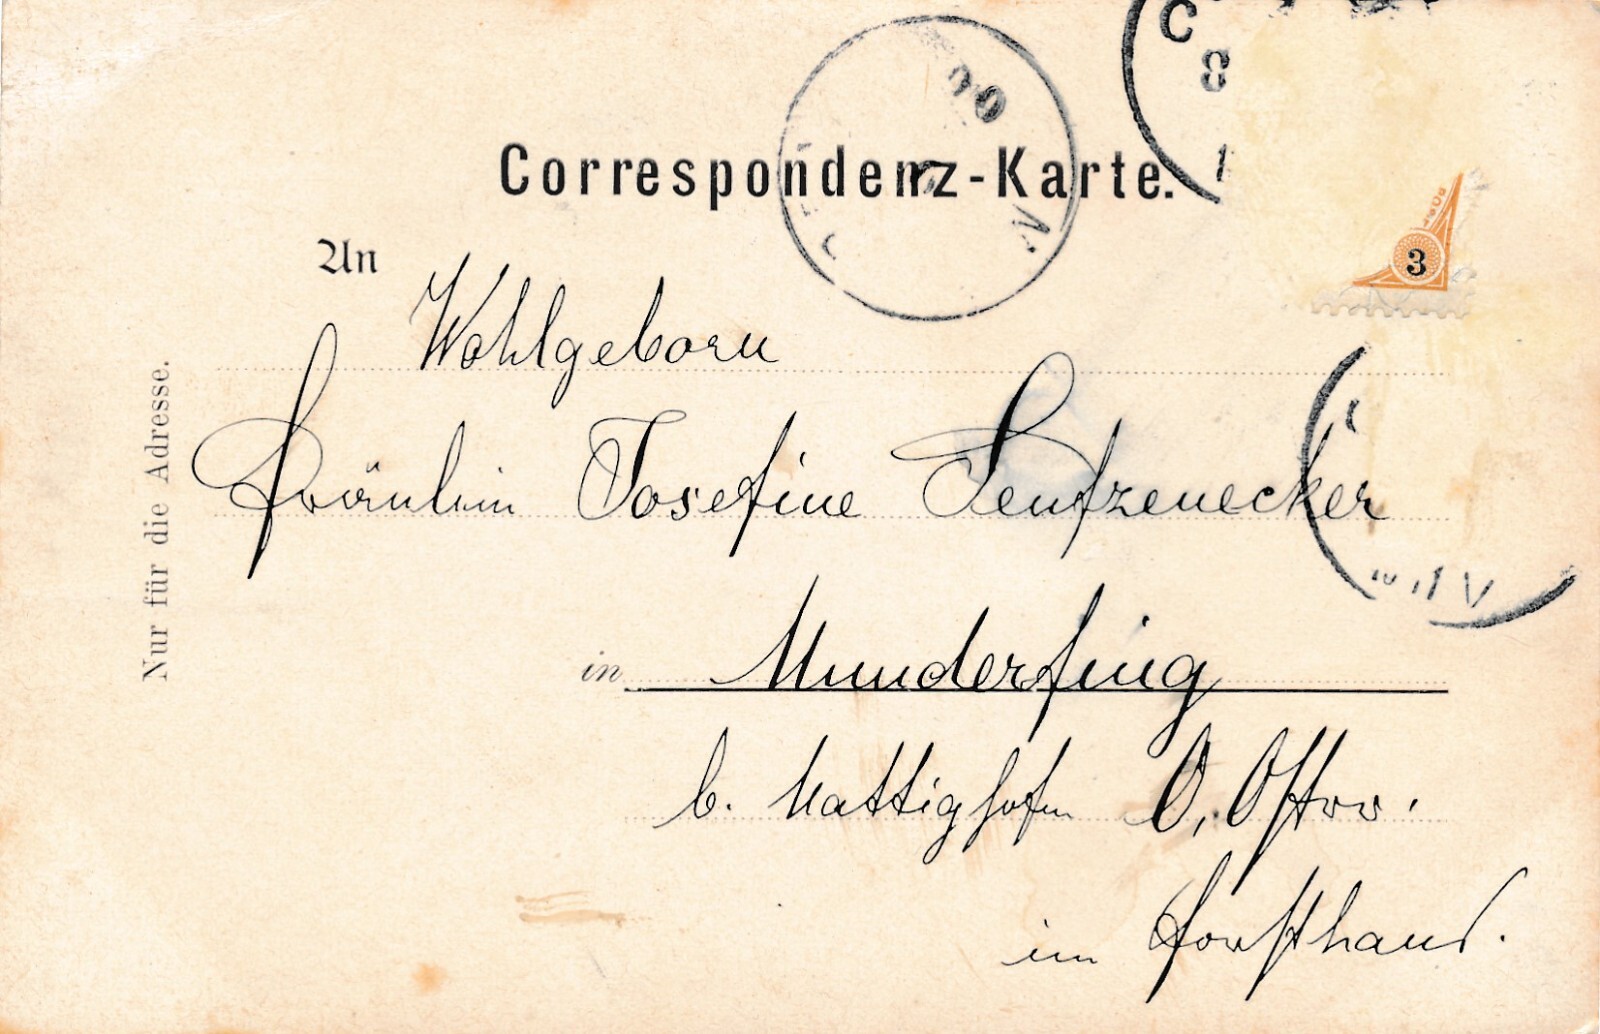 Correspondenz-Karte.
An
Wohlgeborn
Fräulein Josefine Seufzenecker
in Munderfing
b. Mattighofen O. Öster.
im Forsthaus.
Nur für die Adresse.
3